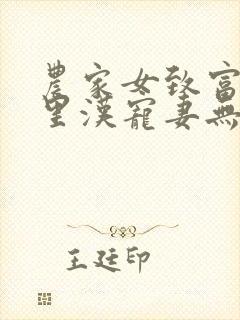 農家女致富
里漢寵妻無
王廷印